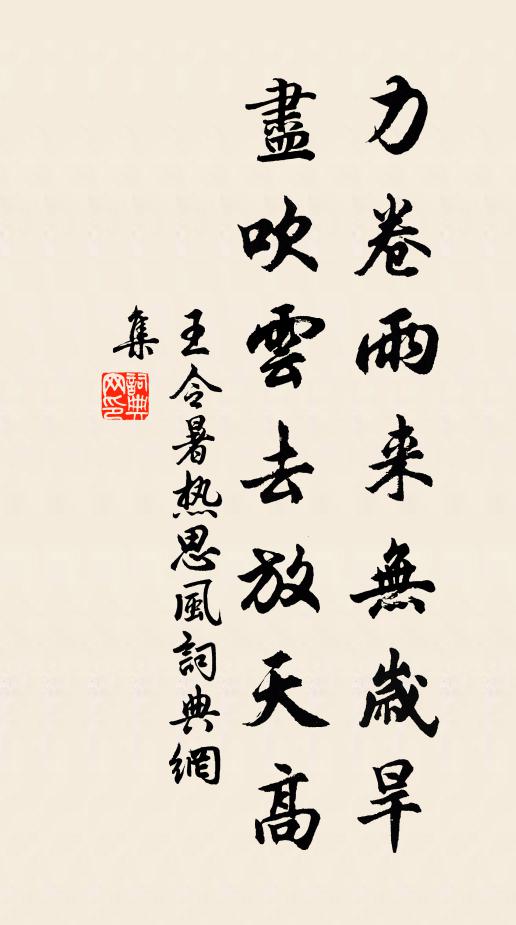 力卷雨来無歳旱
盡吹雲去放天高
王令暑热思風詞典網
集
詞典
网印